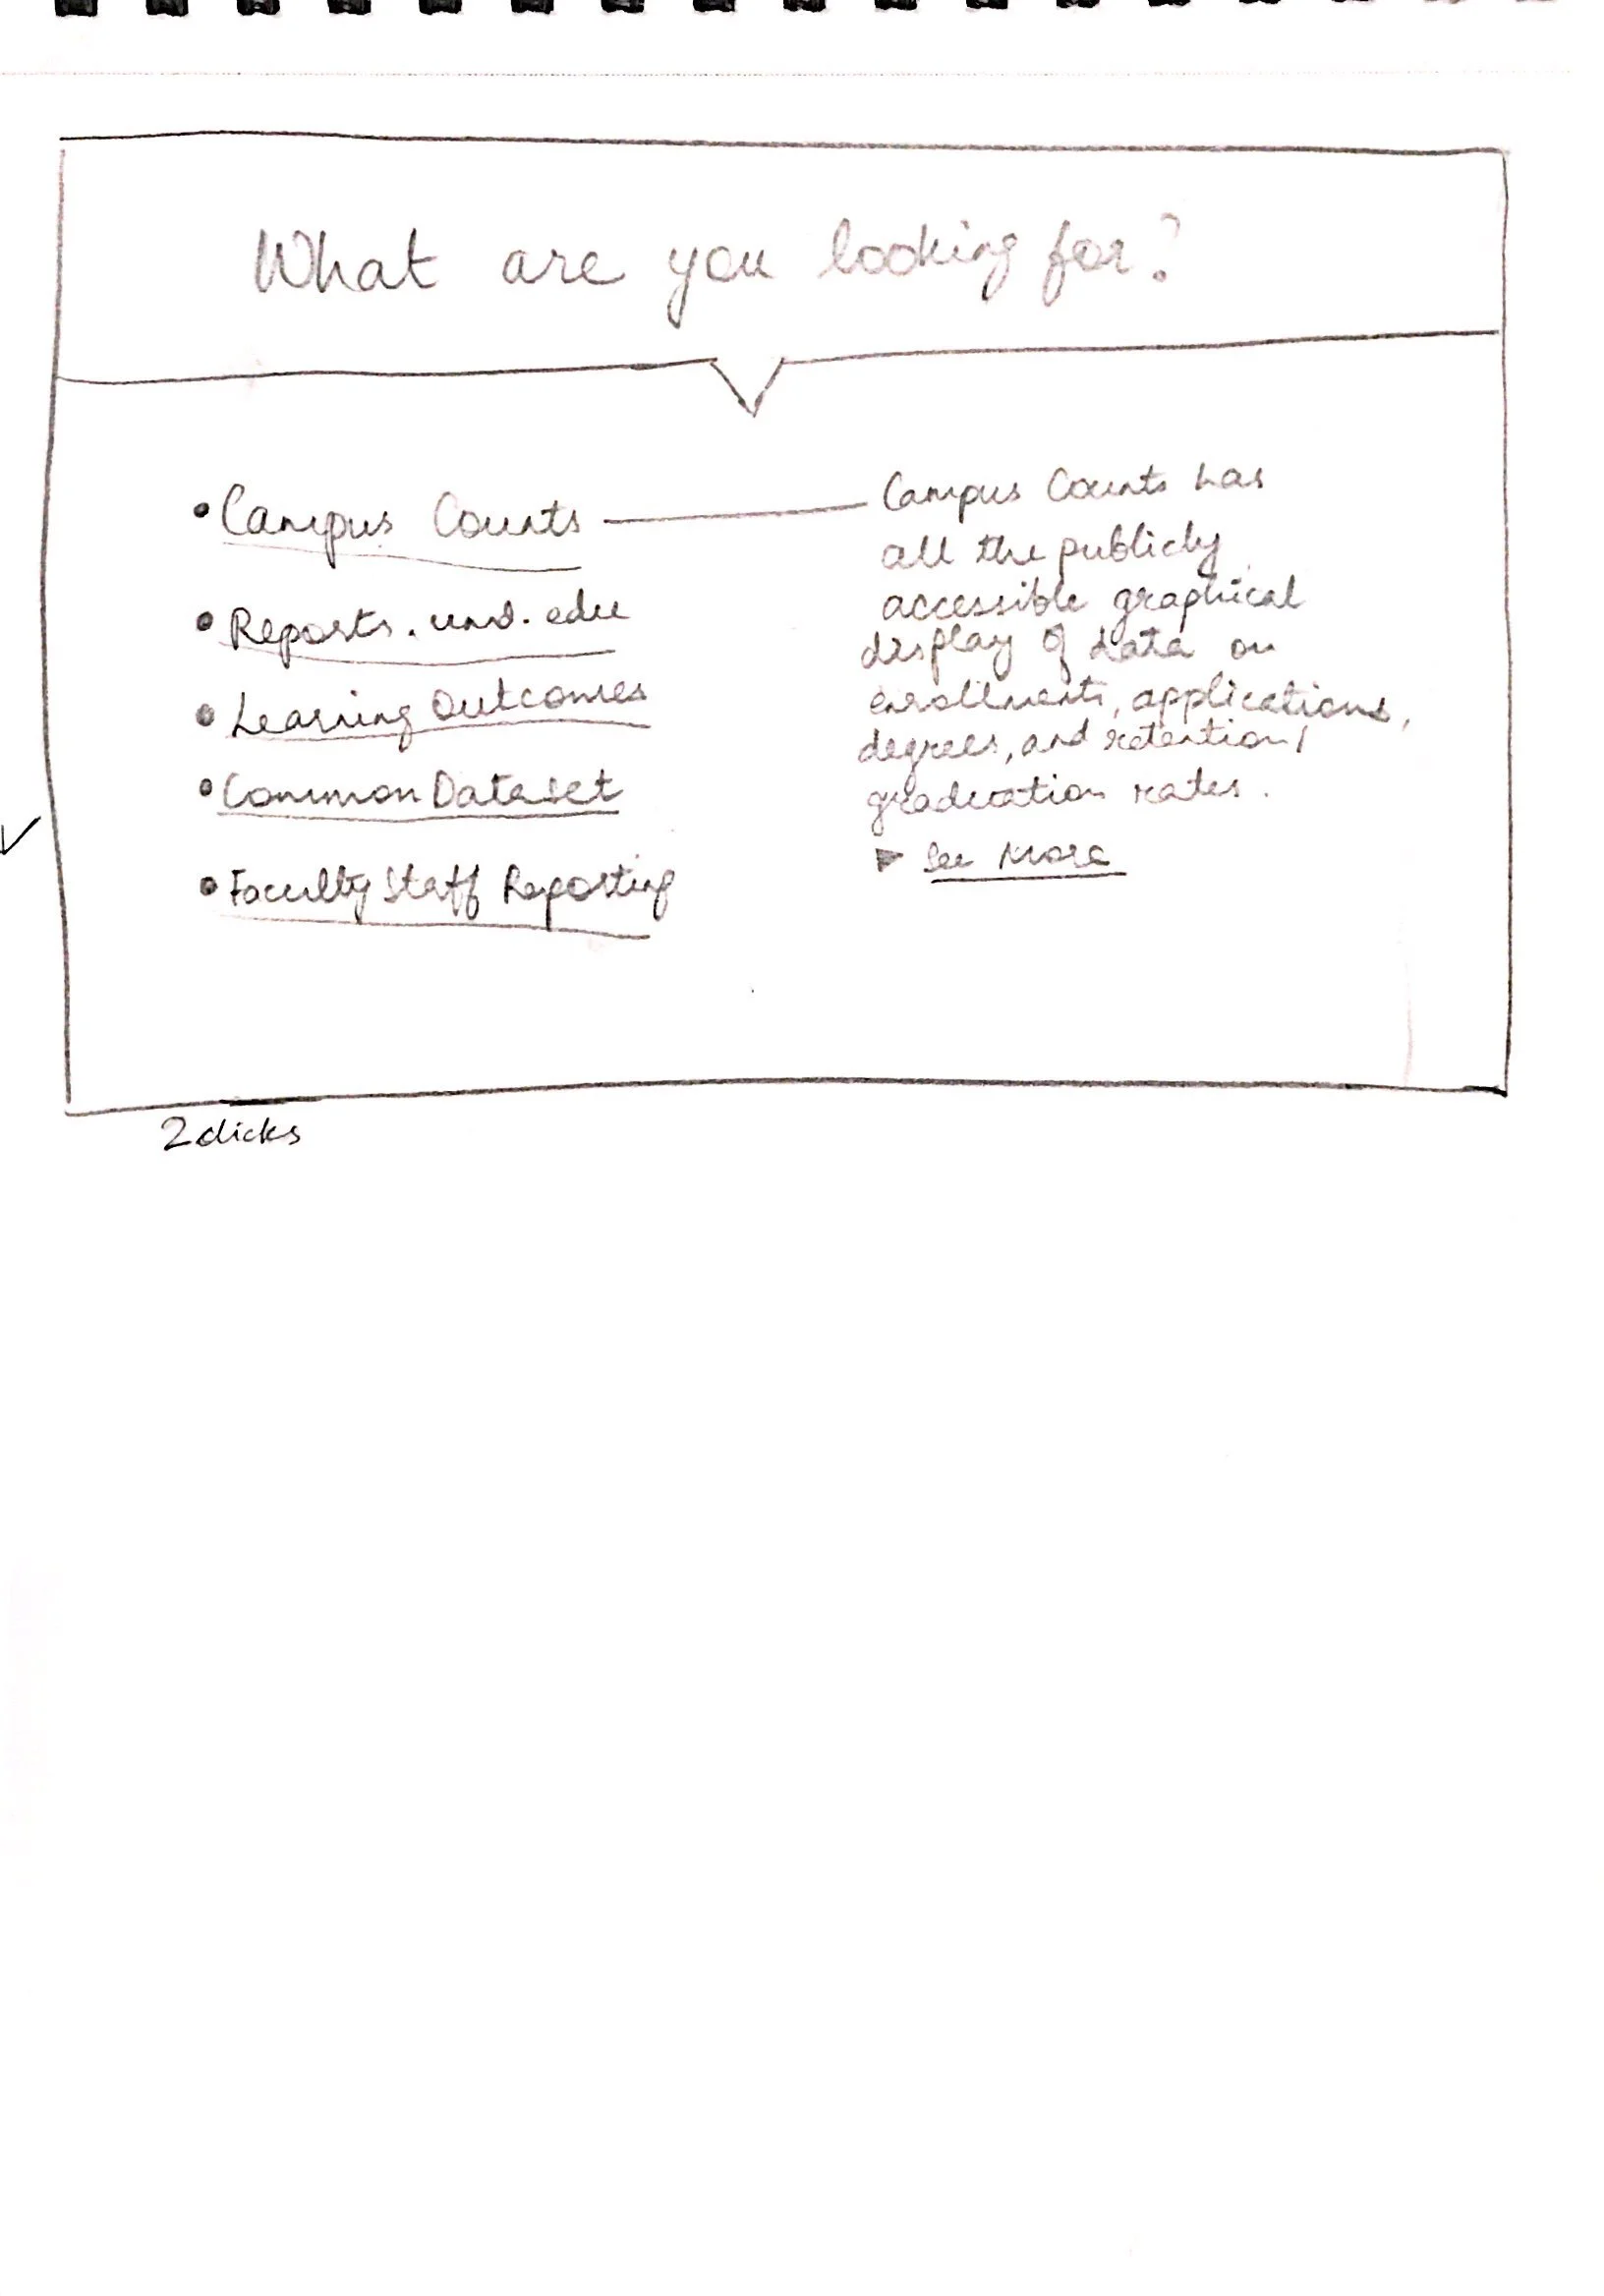 What are you looking for?
• Campus Counts
• Reports.und.edu
• Learning Outcomes
• Common Dataset
• Faculty Staff Reporting
Campus Counts has
all the publicly
accessible graphical
display of data on
enrollments, applications,
degrees, and retention/
graduation rates.
▶ See More
2 clicks